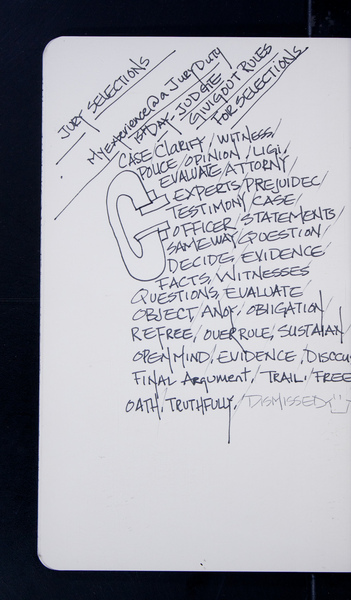 JURY SELECTIONS
MY Experience@a JURY DUTY
TODAY. JUDGE
GIVIGOUT RULES
FOR SELECTIONS
CASE/CLARIFY/WITNESS/
POLICE/OPINION/LIGI/
EVALUATE/ATTORNY/
EXPERTS/PREJUIDEC/
TESTIMONY/CASE/
OFFICER/STATEMENTS/
SAMEWAY/QUESTION/
DECIDE, EVIDENCE/
FACTS, WITNESSES
QUESTIONS, EVALUATE/
OBJECT, ANOY/OBIIGATION/
REFREE/OVERRULE, SUSTAIAN/
OPEN MIND/EVIDENCE, DISCCU
FINAL Argument,/TRAIL./FREE
OATH, TRUTHFULLY,/DISMISSED